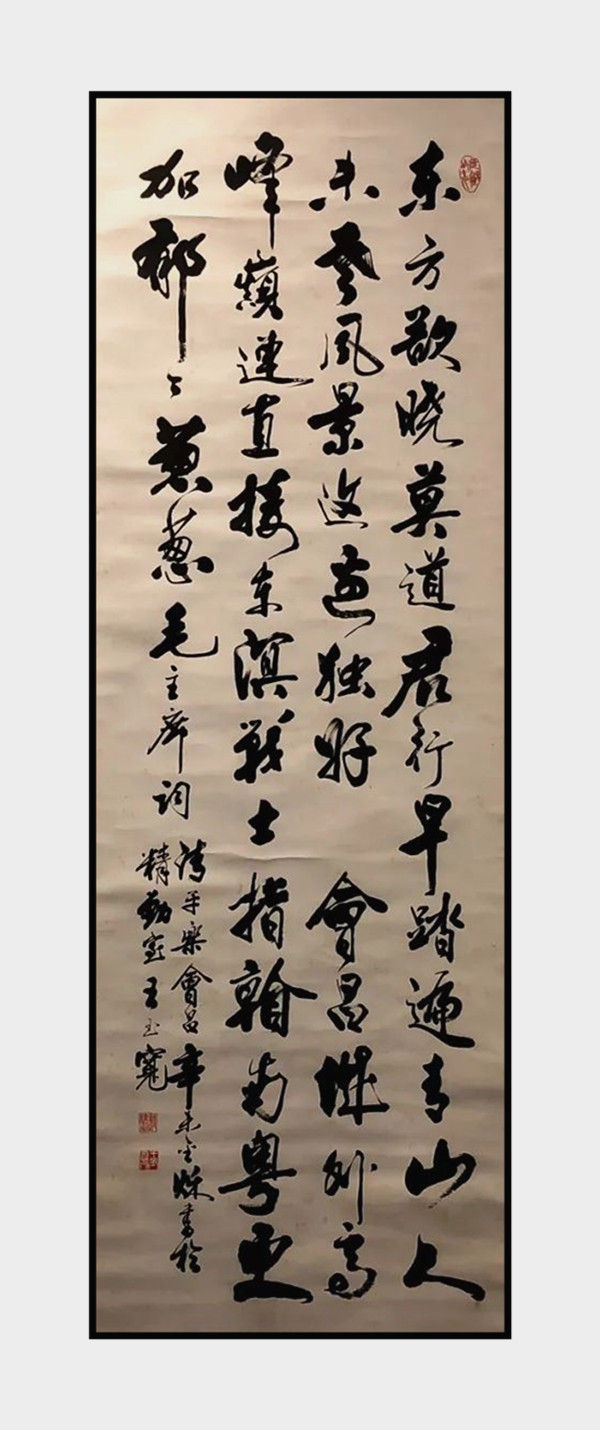 东方欲晓莫道君行早踏遍青山人
未老风景这边独好 會昌城外高
峰巅連直接东溟戰士指看南粤更
加郁々葱葱毛主席词
清平樂會昌 辛未金秋書於
精勤室王玉寬